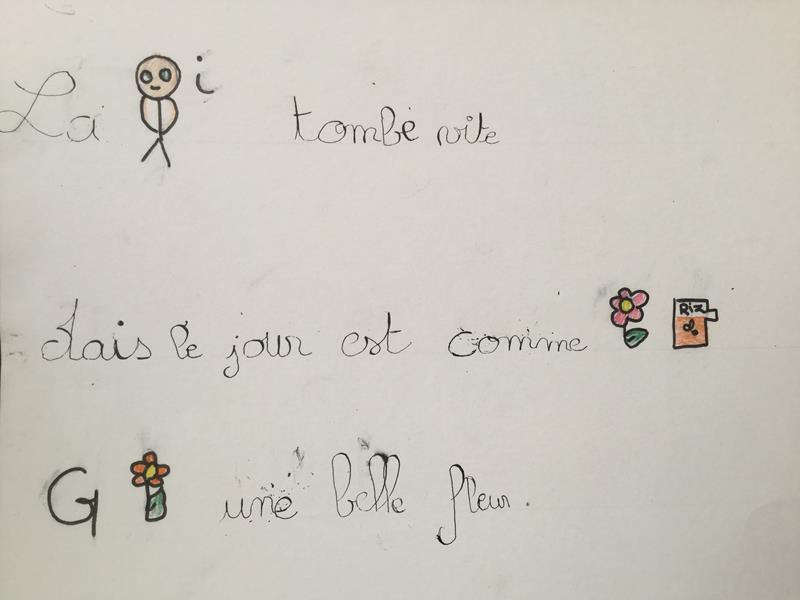 La i tombé vite
Mais le jour est comme Riz
G une belle fleur.